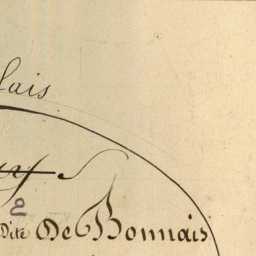 lais
2
Dite De Bonnais